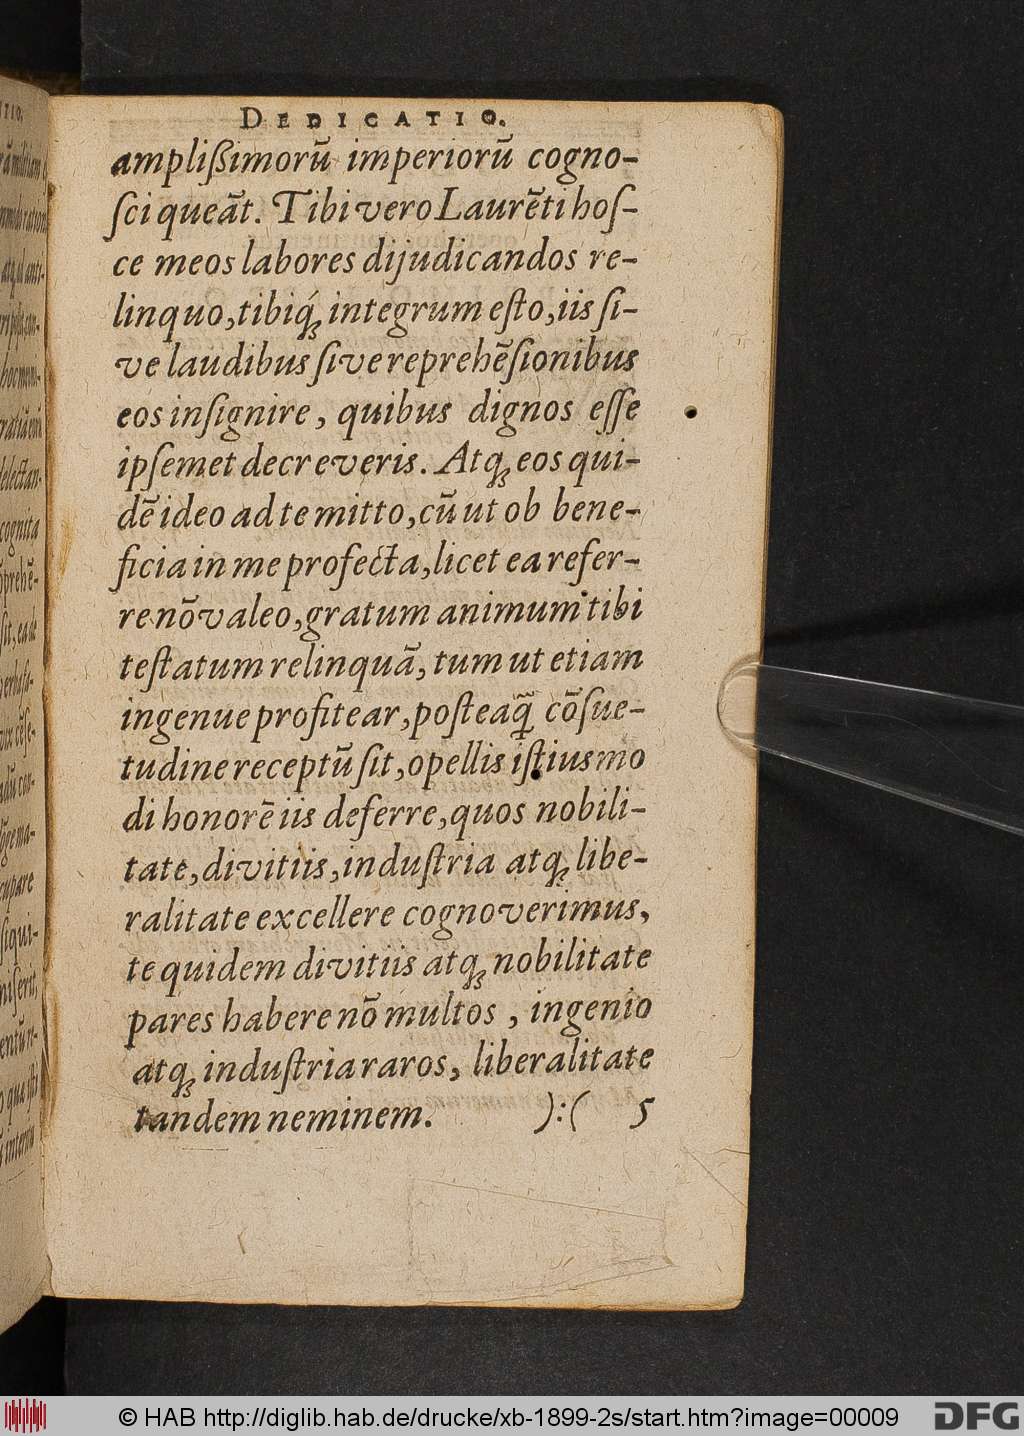 DEDICATIO.
amplißimorū imperiorū cogno-
ſci queāt. Tibi vero Laurēti hoſ-
ce meos labores dijudicandos re-
linquo, tibiq́ꝫ integrum eſto, iis ſi-
ve laudibus ſive reprehēſionibus
eos inſignire, quibus dignos eſſe
ipſemet decreveris. Atqꝫ eos qui-
dē ideo ad te mitto, cū ut ob bene-
ficia in me profecta, licet ea refer-
re nō valeo, gratum animum tibi
teſtatum relinquā, tum ut etiam
ingenue profitear, poſteaq̄ cōſue-
tudine receptū ſit, opellis iſtiusmo
di honorē iis deferre, quos nobili-
tate, divitiis, induſtria atqꝫ libe-
ralitate excellere cognoverimus,
te quidem divitiis atqꝫ nobilitate
pares habere nō multos, ingenio
atqꝫ induſtria raros, liberalitate
tandem neminem. ):( 5
© HAB http://diglib.hab.de/drucke/xb-1899-2s/start.htm?image=00009 DFG